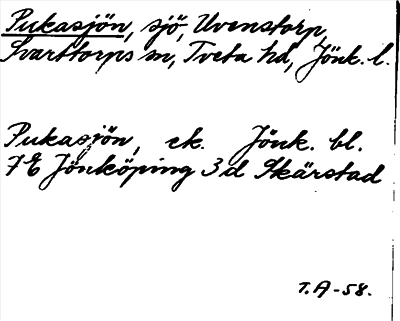 Pukasjön, sjö, Uvenstorp,
Svarttorps sn, Tveta hd, Jönk. l.
Pukasjön, ek. Jönk. bl.
7E Jönköping 3d Skärstad
T.A-58.